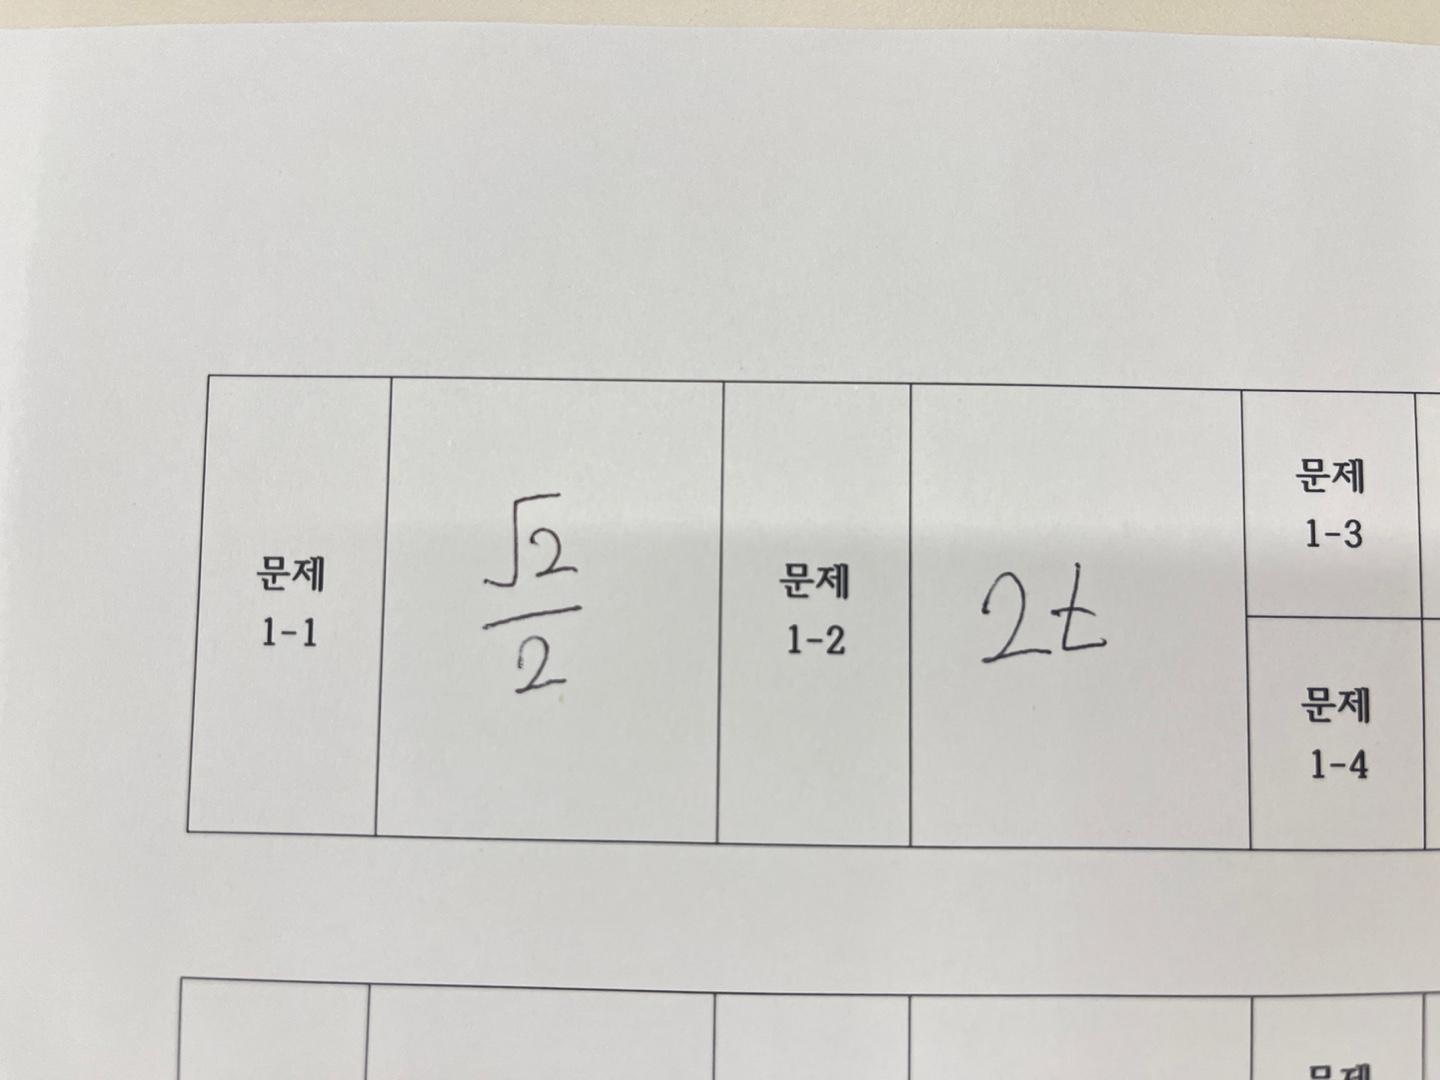 문제
1-1
√2
2
문제
1-2
2t
문제
1-3
문제
1-4
문제